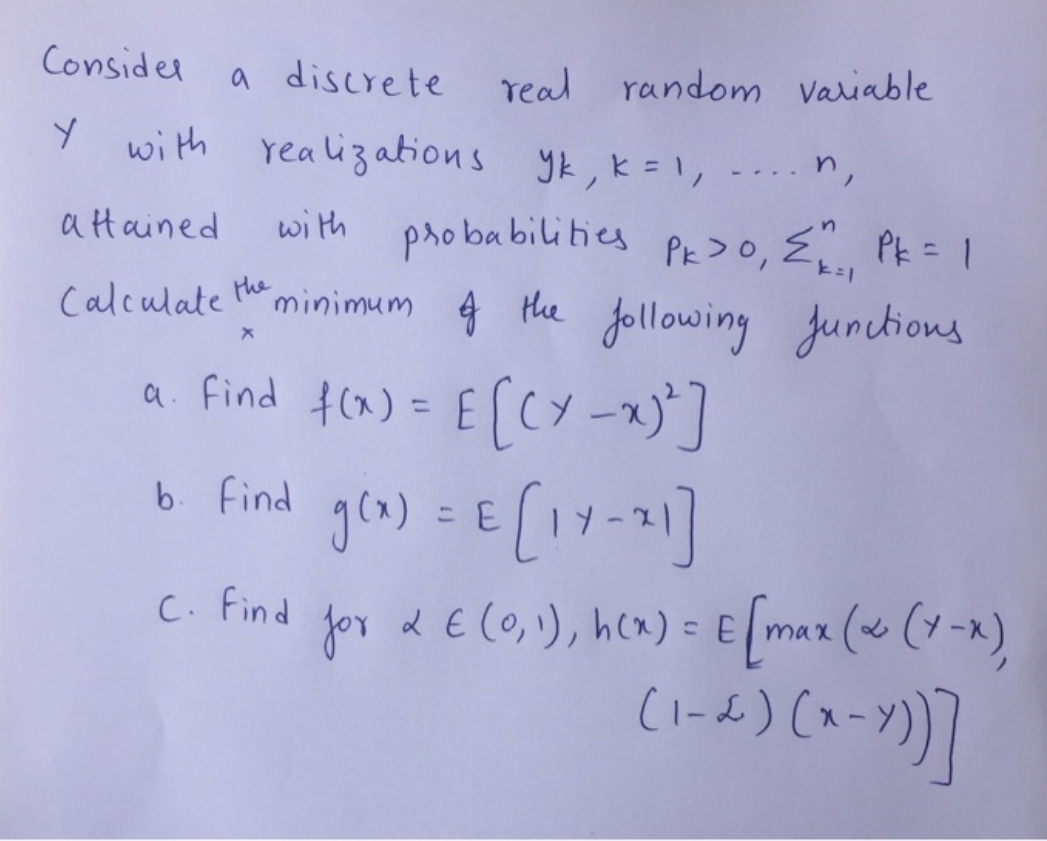 Consider a discrete real random variable
Y with realizations yk, k = 1, .... n,
attained with probabilities Pk > 0, Σⁿk=1 Pk = 1
Calculate the minimum of the following functions
x
a. Find f(x) = E[(Y - x)²]
b. Find g(x) = E[|Y - x|]
C. Find for α ∈ (0,1), h(x) = E[max(α (Y-x),
(1-α) (x-Y))]